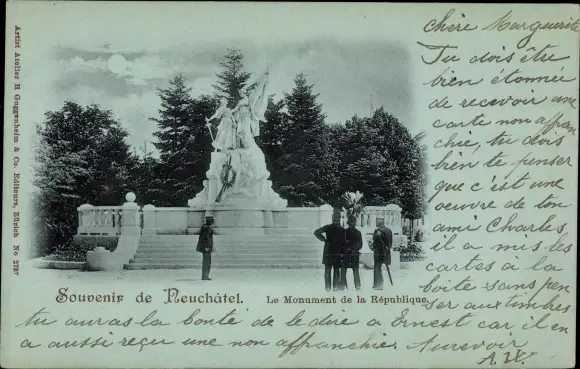 Artist Atelier H Guggenheim & Co. Editeurs, Zürich No 2787
Souvenir de Neuchâtel.
Le Monument de la République.
chère Marguerite
Tu dois être
bien étonnée
de recevoir une
carte non affran
chie, tu dois
bien te penser
que c'est une
œuvre de ton
ami Charles,
il a mis les
cartes à la
boîte sans pen
ser aux timbres
tu auras la bonté de le dire a Ernest car, il en
a aussi reçu une non affranchie. Aurevoir
A.W.